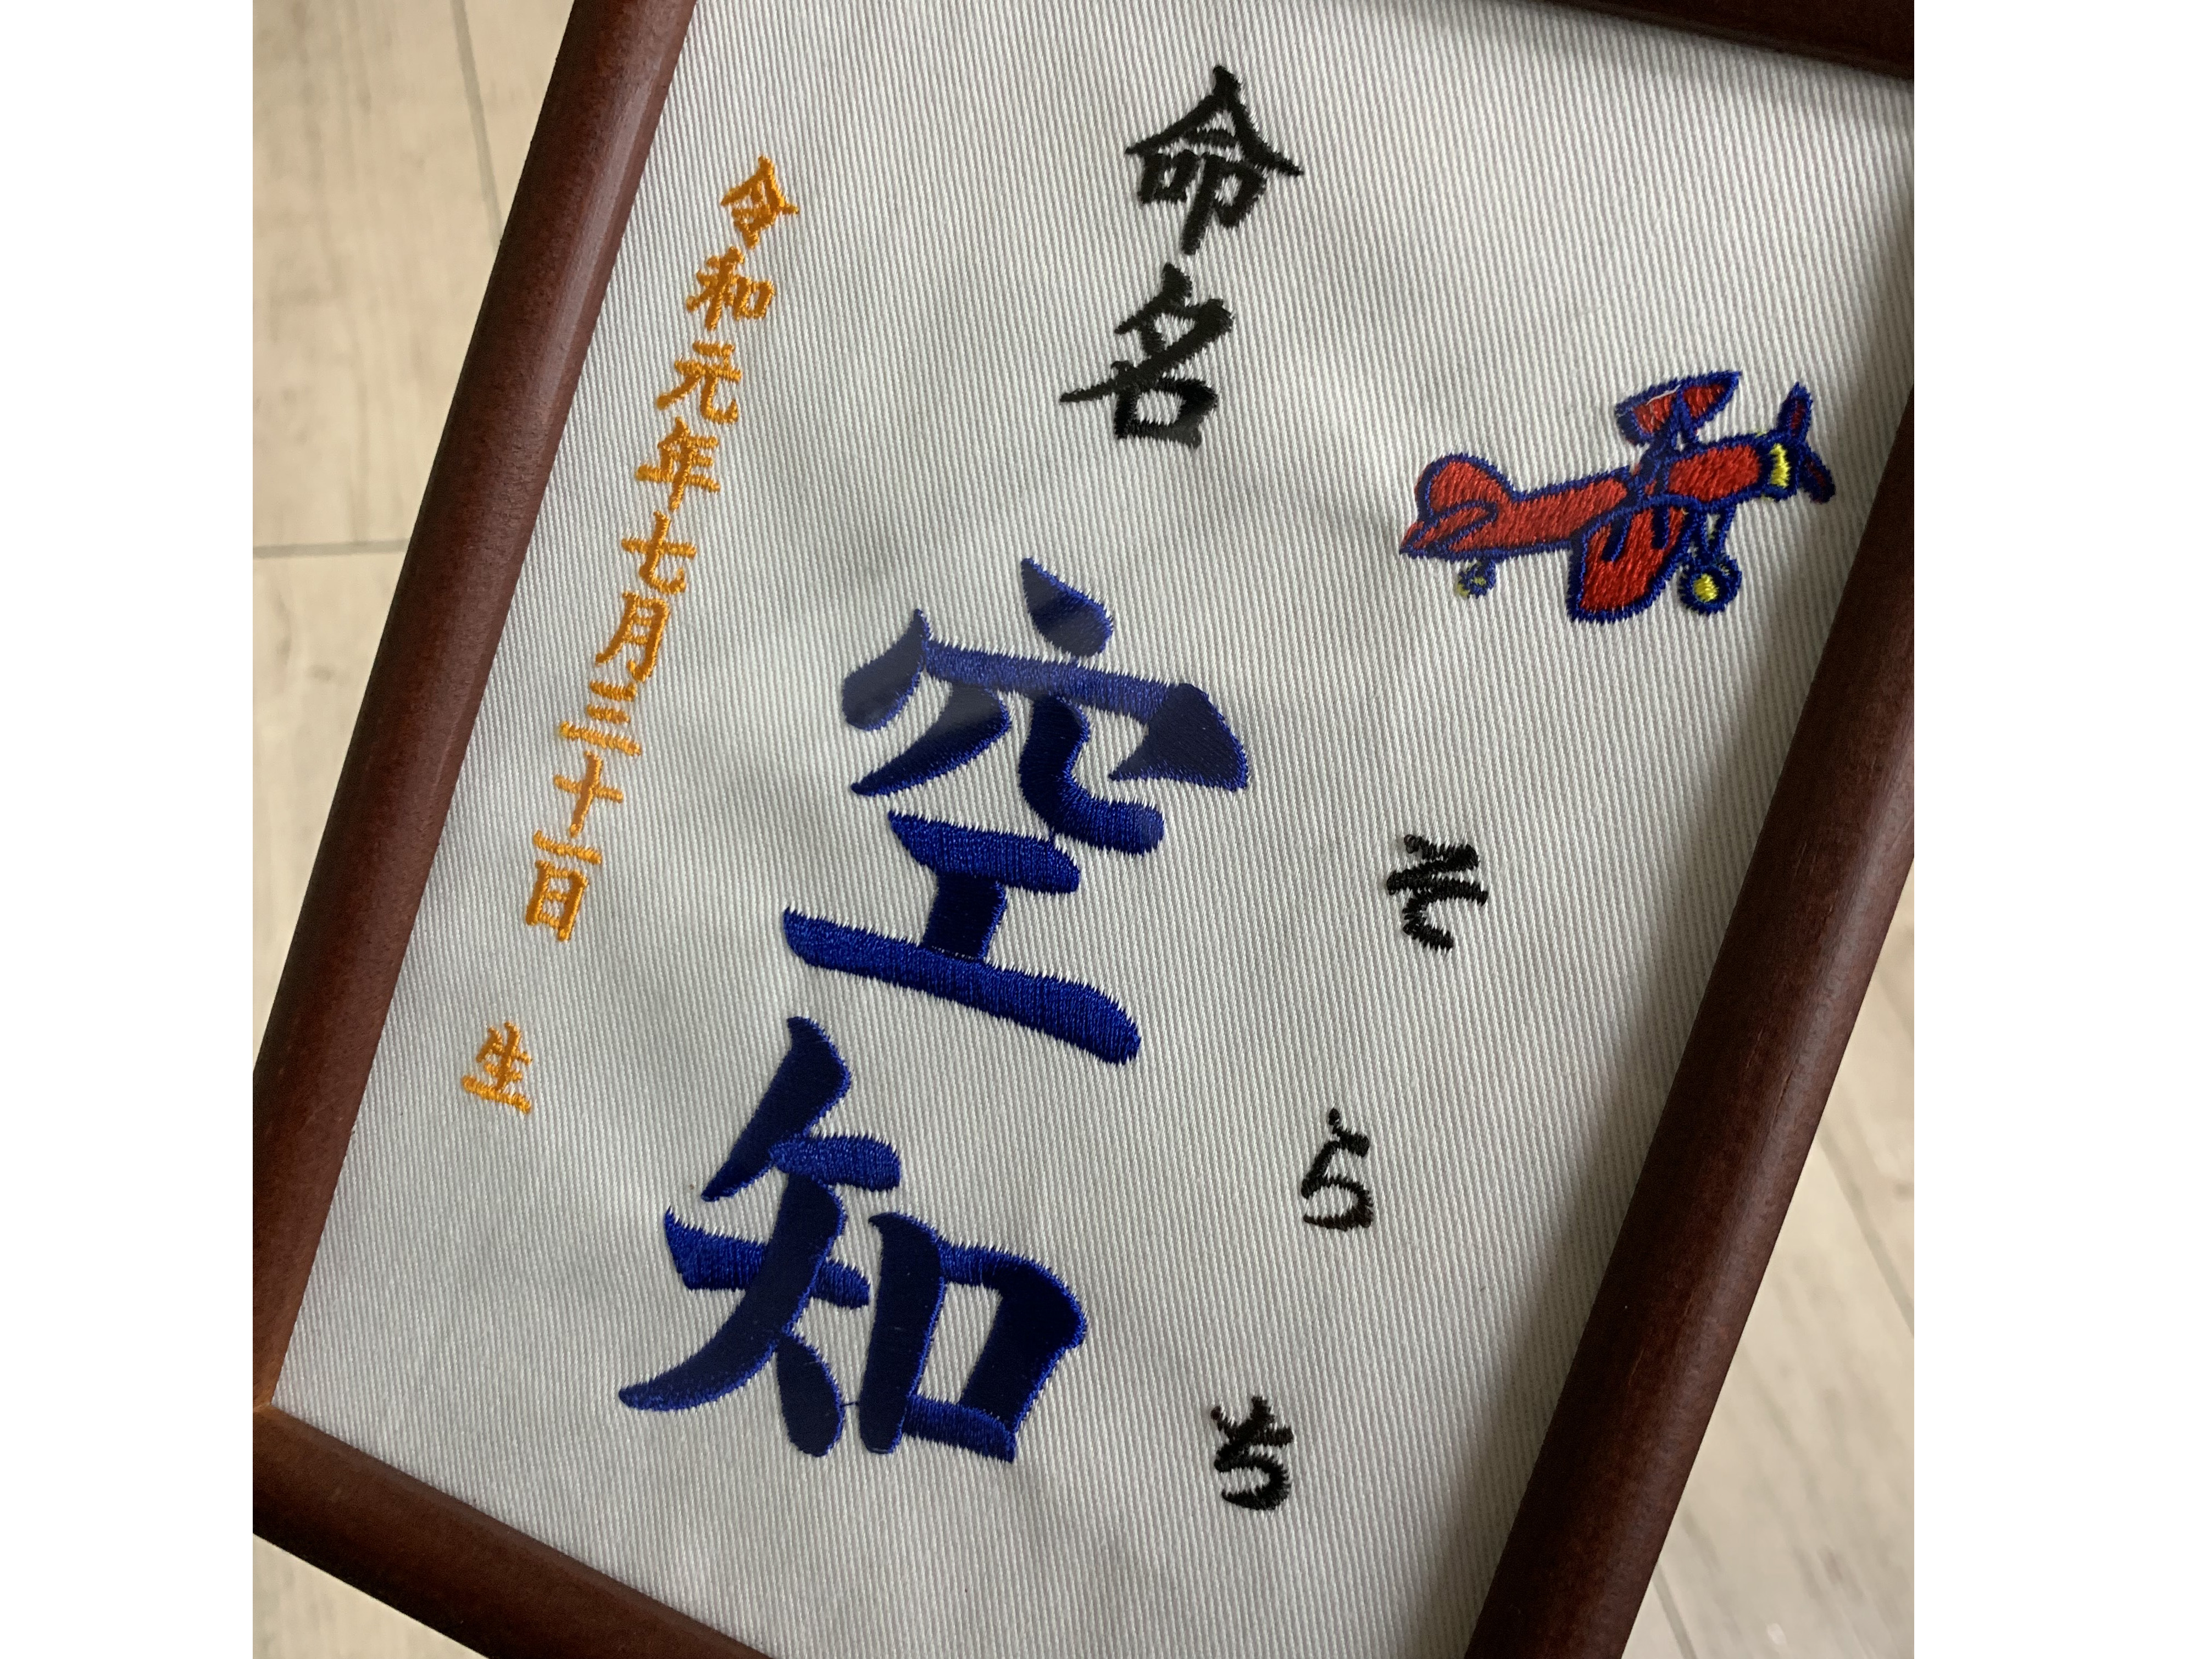 命名
そらち
空知
令和元年七月三十一日 生